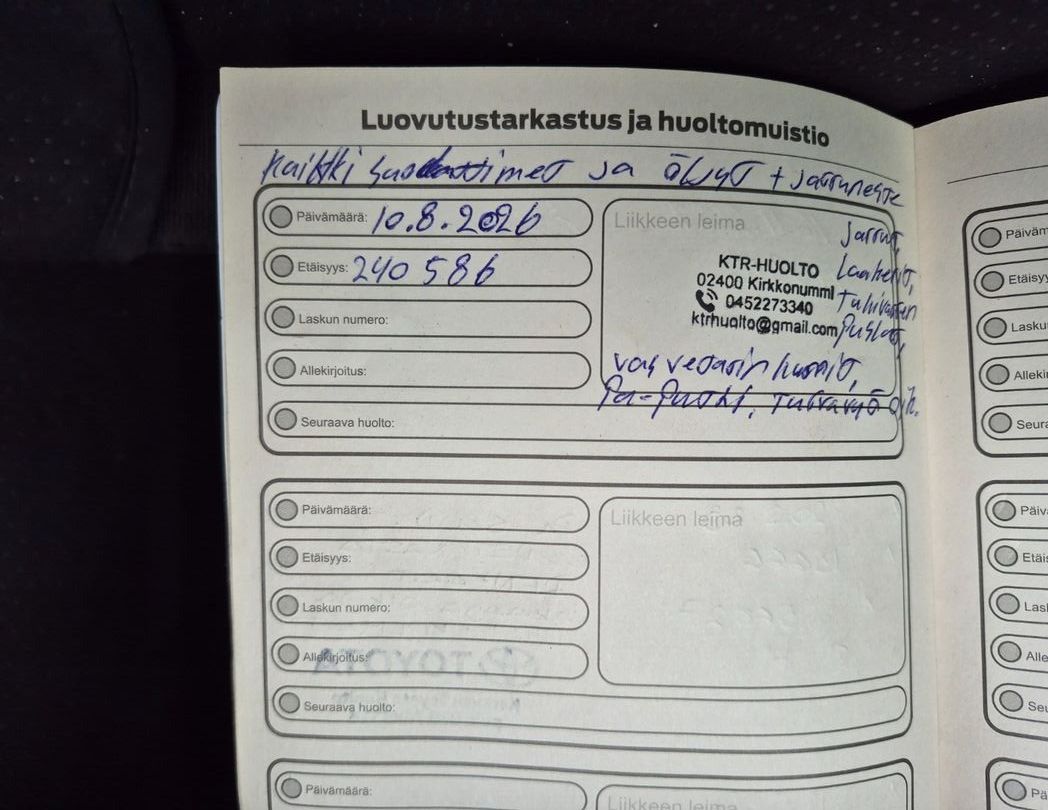 Luovutustarkastus ja huoltomuistio
kaikki suodattimet ja öljyt + jarruneste
Päivämäärä: 10.8.2026
Etäisyys: 240 586
Laskun numero:
Allekirjoitus:
Seuraava huolto:
Liikkeen leima
KTR-HUOLTO
02400 Kirkkonummi
0452273340
ktrhuolto@gmail.com
Jarrut,
Laakerit,
Tukivarren
Puslat,
vas vetarin kumit,
Pa-Putki,
Päivämäärä:
Etäisyys:
Laskun numero:
Allekirjoitus:
Seuraava huolto:
Liikkeen leima
TOYOTA
Päivämäärä:
Liikkeen leima
Päiväm
Etäisy
Lasku
Allekir
Seura
Päivä
Etäis
Lasl
Alle
Seu
Pä